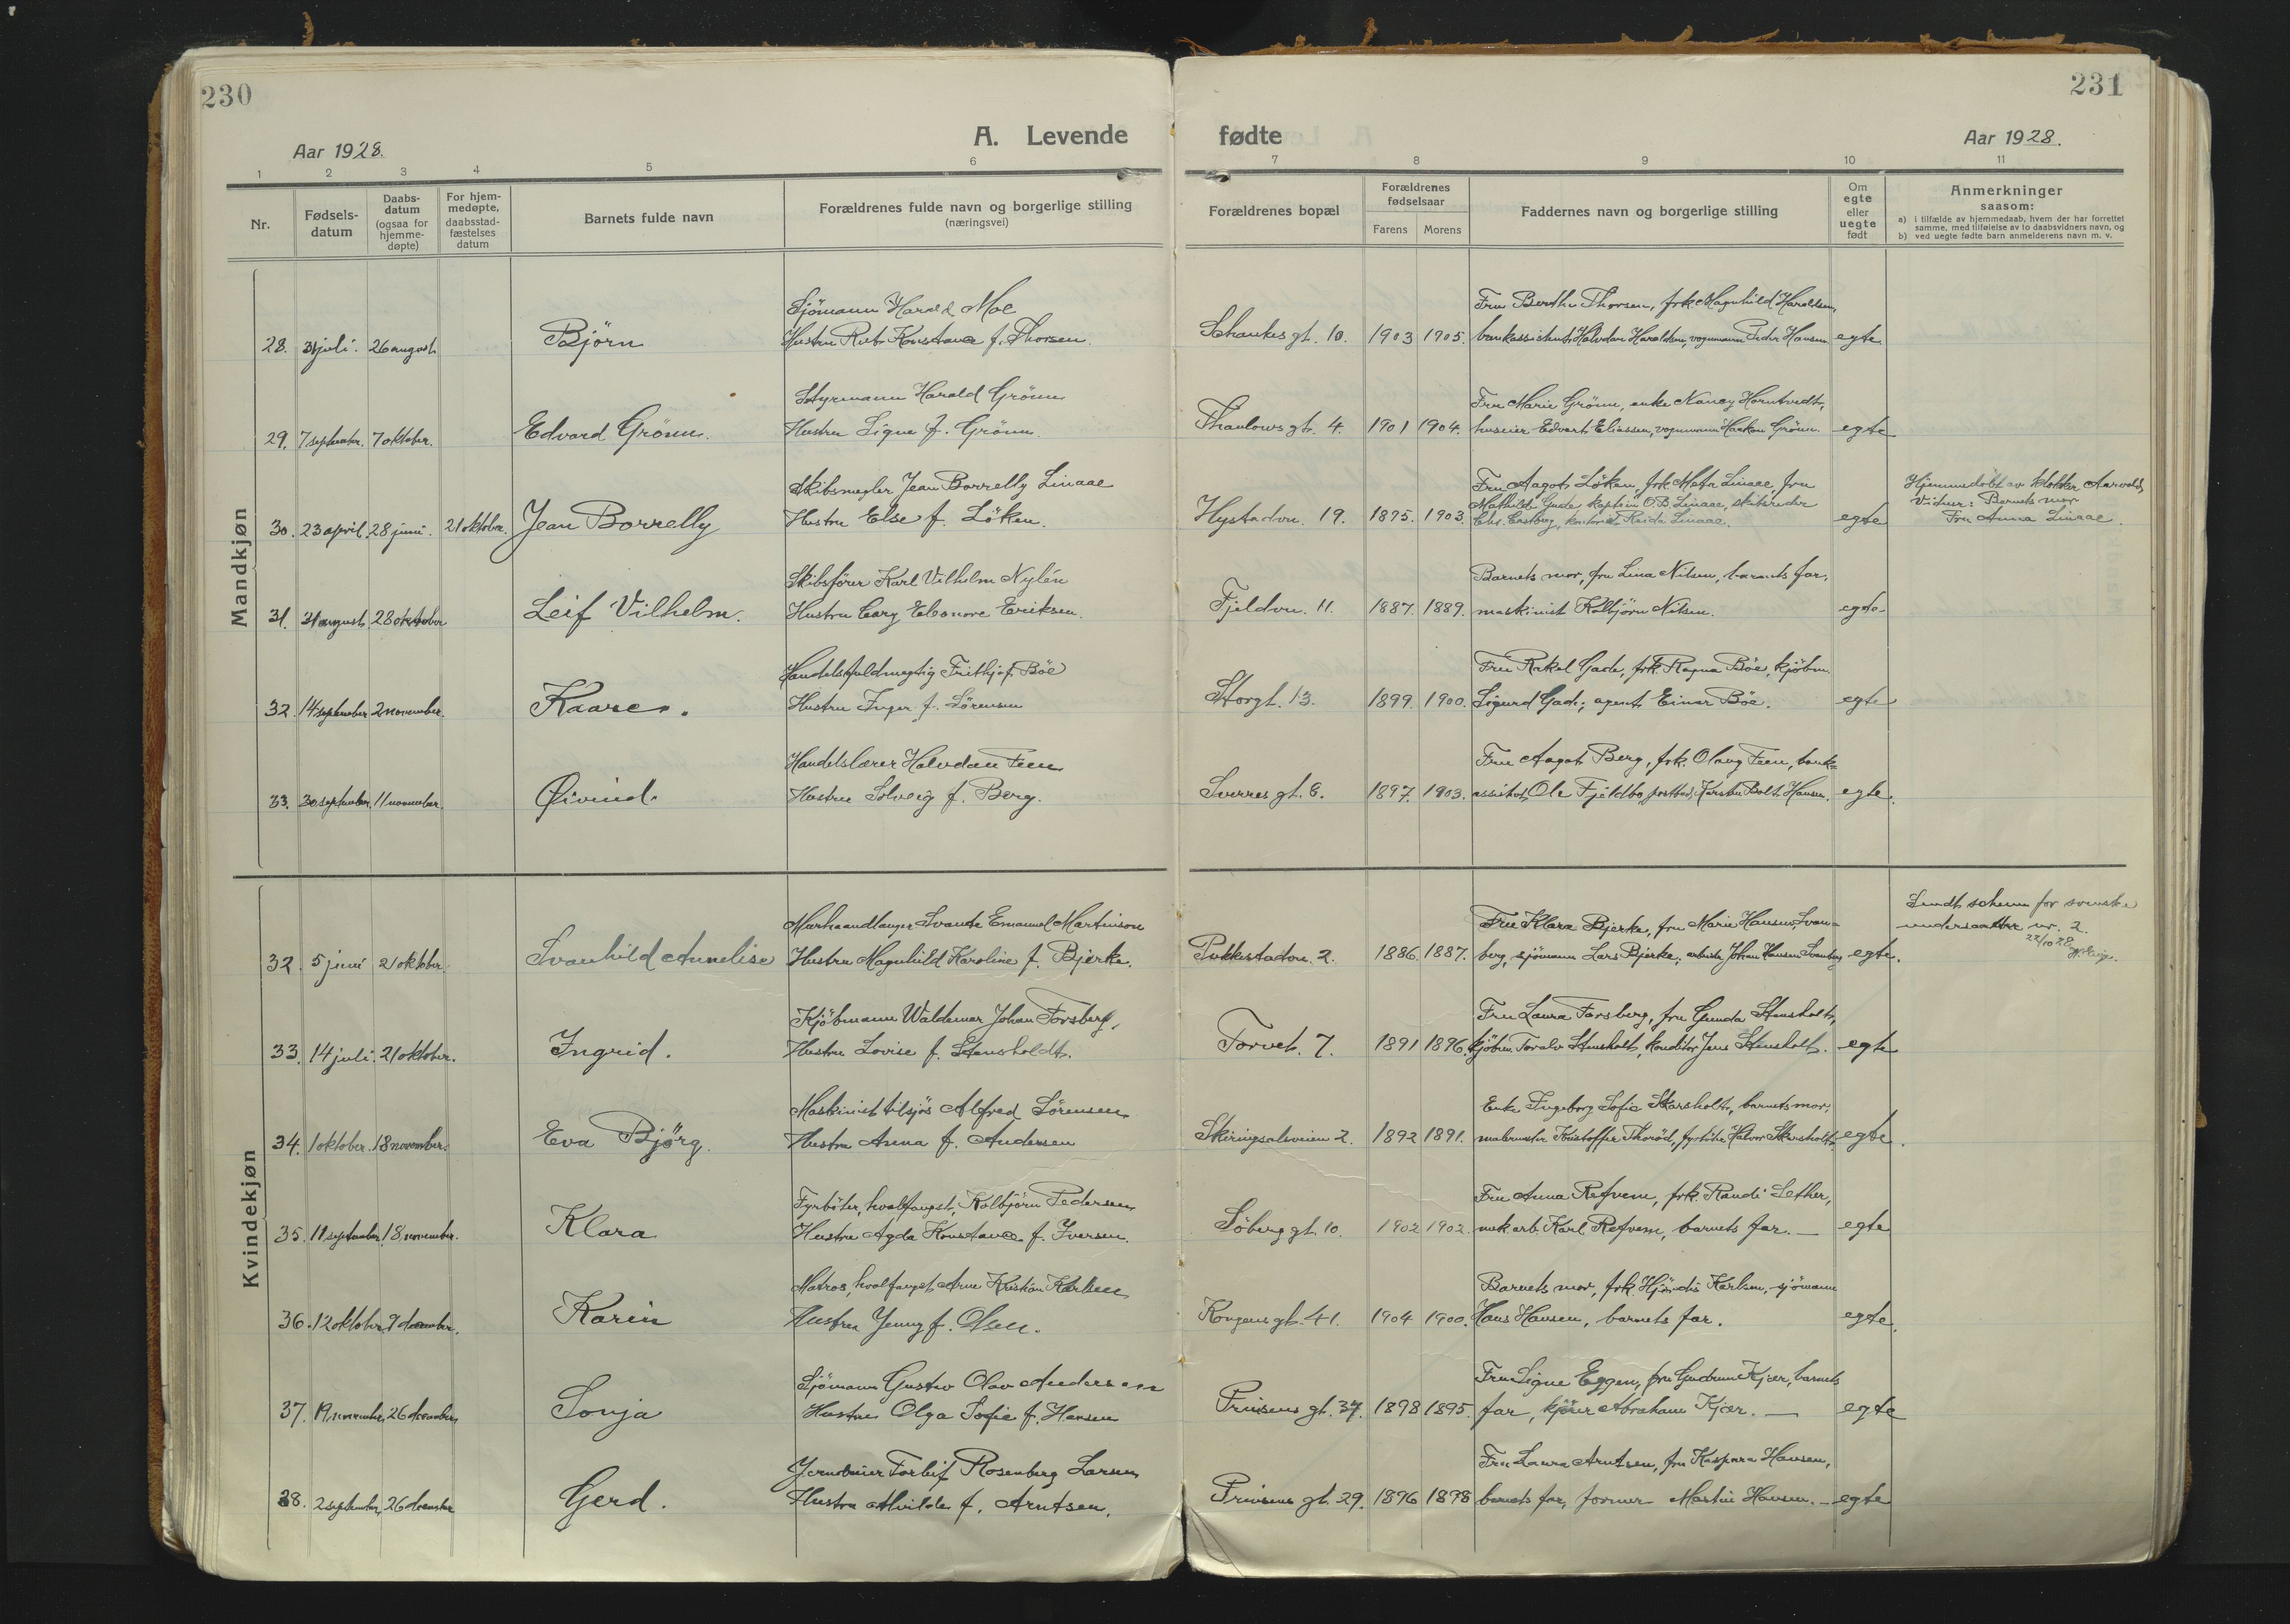 230
231
A. Levende fødte
Aar 1928.
Aar 1928.
1 2 3 4 5 6 7 8 9 10 11
Nr.
Fødsels-
datum
Daabs-
datum
(ogsaa for
hjemme-
døpte)
For hjem-
medøpte,
daabsstad-
fæstelses
datum
Barnets fulde navn
Forældrenes fulde navn og borgerlige stilling
(næringsvei)
Forældrenes bopæl
Forældrenes
fødselsaar
Farens Morens
Faddernes navn og borgerlige stilling
Om
egte
eller
uegte
født
Anmerkninger
saasom:
a) i tilfælde av hjemmedaab, hvem der har forrettet
samme, med tilføielse av to daabsvidners navn, og
b) ved uegte fødte barn anmelderens navn m. v.
Mandkjøn
Sjömann Harald Moe Fru Berthe Thorsen, frk. Magnhild Haraldsen,
28. 31 juli. 26 august Björn Hustru Konstance f. Thorsen. gt. 10. 1903 1905. bankassistent Halvdan Haraldsen, vognmann Peder Hansen egte
Styrmann Harald Grönn Fru Marie Grönn, enke Nancy Horntvedt,
29. 7 september. 7 oktober. Edvard Grönn. Hustru Signe f. Grönn. Thaulows gt. 4. 1901 1904. huseier Edvart Eliassen, vognmann Haakon Grönn. egte
Skibsmegler Jean Borrelly Linaae Fru Aagot Löken, frk. Linaae, fru Hjemmedöbt av klokker Aarvold,
Mathilde Gude, kaptein O.B. Linaae, skibsreder Vidner: Barnets mor
30. 23 april. 28 juni. 21 oktober. Jean Borrelly Hustru Else f. Löken. Hystadvn. 19. 1895. 1903. Linaae. egte Fru Anna Linaae.
Skibsförer Karl Vilhelm Nylén Barnets mor, fru Lina Nilsen, barnets far,
31. 31 august. 28 oktober Leif Vilhelm. Hustru Eleonore Eriksen. Fjeldvn. 11. 1887. 1889. maskinist Kolbjörn Nilsen. egte
Handelsfuldmegtig Frithjof Böe Fru Rakel Gade, frk. Ragna Böe, kjöbm.
32. 14 september 2 november. Kaare. Hustru Inger f. Sörensen Storgt. 13. 1899. 1900. Sigurd Gade, agent Einar Böe. egte
Handelslærer Halvdan Feen Fru Aagot Berg, frk. Olaug Feen, bank=
33. 30 september. 11 november. Øivind. Hustru Solveig f. Berg. Sverres gt. 6. 1897. 1903. assistent Ole Fjeldbo, Karsten Bolt Hansen. egte.
Kvindekjøn
Murhaandlanger Svante Emanuel Martinson Fru Klara Bjerke, fru Marie Hansen Svan= Sendt schema for svenske
undersaatter nr. 2.
22/10 28
32. 5 juni 21 oktober. Svanhild Annelise Hustru Magnhild Karoline f. Bjerke. Pukkestadvn. 2. 1886. 1887. berg, sjömann Lars Bjerke, arbeider Johan Hansen Svanberg egte.
Kjöbmann Waldemar Johan Forsberg, Fru Laura Forsberg, fru Gunda Stensholt,
33. 14 juli. 21 oktober. Ingrid. Hustru Lovise f. Stensholdt. Torvet. 7. 1891 1896. kjöbm. Toralv Stensholt, konditor Jens Stensholt. egte
Maskinist tilsjös Alfred Sörensen Enke Ingeborg Sofie Skarsholt, barnets mor,
34. 1 oktober. 18 november. Eva Björg. Hustru Anna f. Andersen Skiringsalsveien 2. 1892 1891. malermester Kristoffer Thoröd, fyrböter Halvor Skarsholt. egte.
Fyrböter, hvalfangst, Kolbjörn Pedersen Fru Anna Refvem, frk. Randi Sether,
35. 11 september. 18 november. Klara Hustru Agda Konstance f. Iversen. Söberg gt. 10. 1902 1902. mek.arb. Karl Refvem, barnets far. — egte
Matros, hvalfangst Arne Kristian Karlsen Barnets mor, frk. Hjördis Karlsen, sjömann
36. 12 oktober. 9 desember. Karin Hustru Jenny f. Olsen. Kongens gt. 41. 1904 1900. Hans Hansen, barnets far. egte.
Sjömann Gustav Olav Andersen Fru Signe Eggen, fru Gudrun Kjær, barnets
37. 19 november. 26 desember Sonja Hustru Olga Sofie f. Hansen Prinsens gt. 37. 1898 1895. far, kjörer Abraham Kjær. — egte
Torleif Rosenberg Larsen Fru Laura Arntsen, fru Kaspara Hansen,
38. 2 september. 26 desember Gerd. Hustru Alvilde f. Arntsen. Prinsens gt. 29. 1896 1898 barnets far, former Martin Hansen. — egte